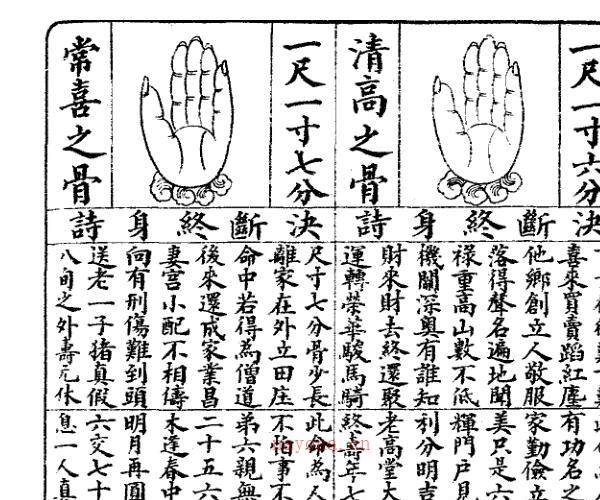 一尺一寸六分
清高之骨
決斷終身詩
喜來買賣蹈紅塵
他鄉創立人敬服
落得聲名遍地聞
祿重高山數不低
機關深奧有誰知
財來財去終還聚
運轉榮華駿馬騎
有功名之
家勤儉
美只是六
輝門戶見
利分明吉
老高堂大
終壽年七
一尺一寸七分
常喜之骨
決斷終身詩
尺寸七分骨少長
離家在外立田庄
命中若得為僧道
後來還成家業昌
妻宮小配不相儔
向有刑傷難到頭
送老一子猪真假
八旬之外壽元休
此卦為人
不事不
弟六親無
二十五六
木逢春中
明月再圓
六交七十
息一人真